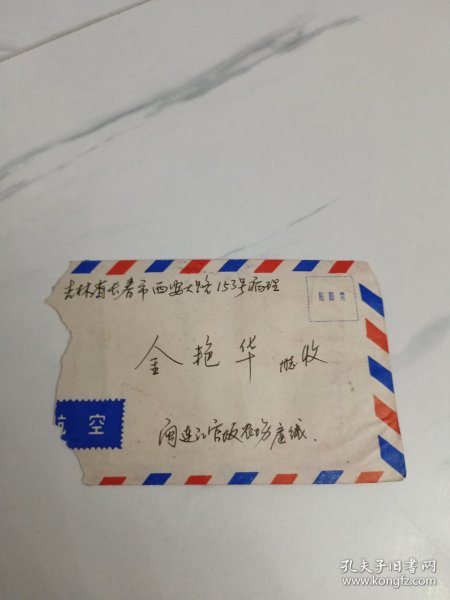 吉林省长春市西安大路153号病理
贴邮票
金艳华 收
航空
闽连江官坂农场庄缄.
孔夫子旧书网
www.kongfz.com